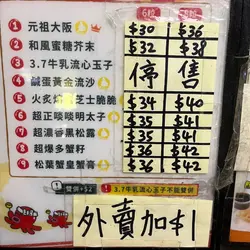 6粒 8粒
1 元祖大阪 $30 $36
2 和風蜜糖芥末 $32 $38
3 3.7牛乳流心玉子 停售
4 鹹蛋黃金流沙
5 火炙 芝士脆脆 $34 $40
6 超正啖啖明太子 $35 $41
7 超濃香黑松露 $35 $41
8 超爆多蟹籽 $36 $42
9 松葉蟹皇蟹膏 $36 $42
雙併+$2 3.7牛乳流心玉子不能雙併
外賣加$1